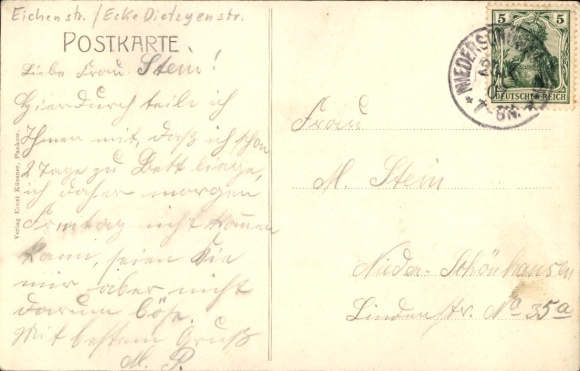 Eichenstr./Ecke Dietzgenstr.
POSTKARTE
Liebe Frau Stein!
Hierdurch teile ich
Ihnen mit, daß ich schon
2 Tage zu Bett liege,
ich daher morgen
Freitag nicht kommen
kann, seien Sie
mir aber nicht
darum böse.
Mit bestem Gruß
M. P.
Verlag Ernst Küssner, Pankow.
5 5
DEUTSCHES REICH
NIEDERSCHÖNH
7-8N.
Frau
M. Stein
Nieder-Schönhausen
Lindenstr. No 35a